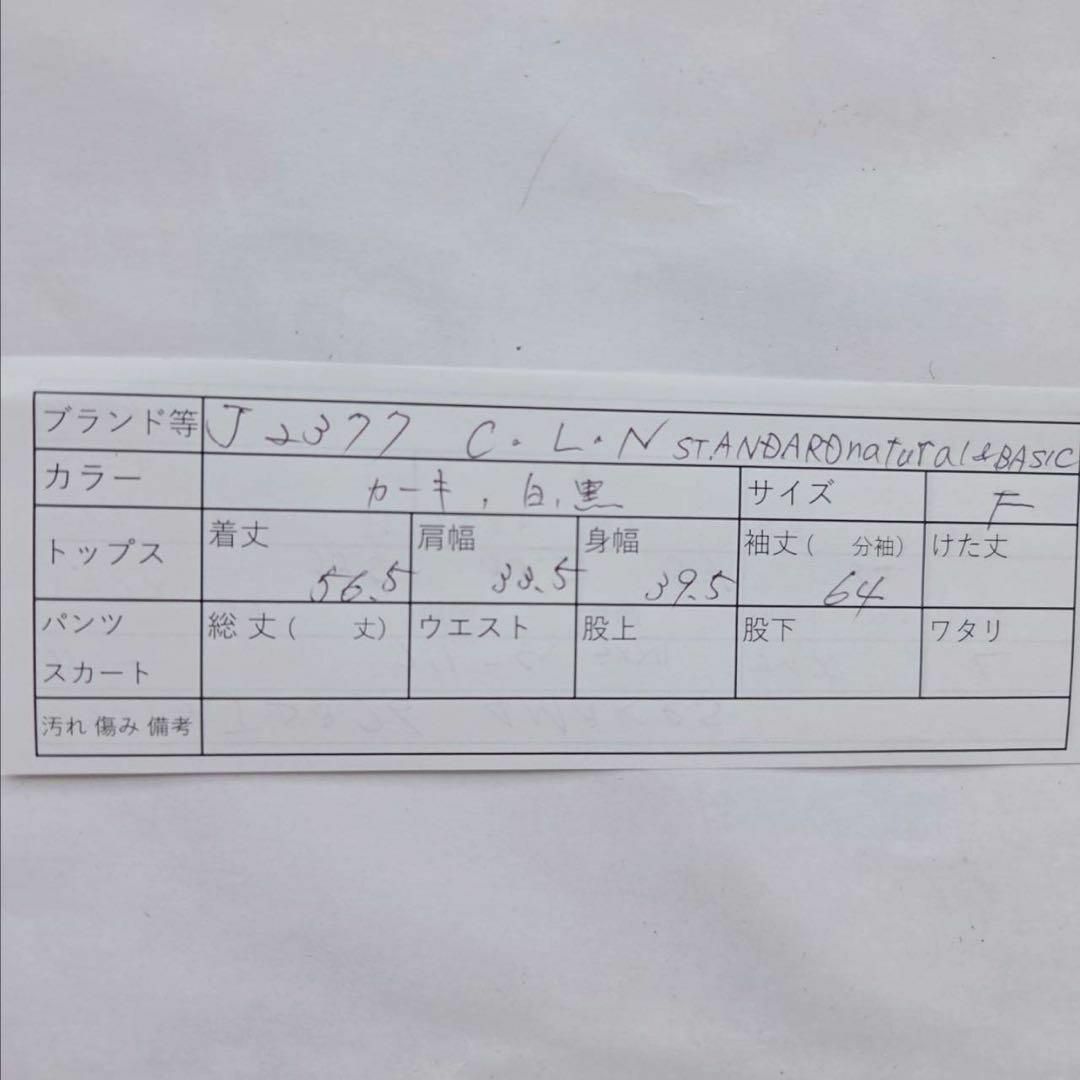 ブランド等 J2377 C・L・N STANDARD natural & BASIC
カラー カーキ、白、黒 サイズ F
トップス 着丈 56.5 肩幅 33.5 身幅 39.5 袖丈( 分袖) 64 けた丈
パンツ スカート 総丈( 丈) ウエスト 股上 股下 ワタリ
汚れ 傷み 備考